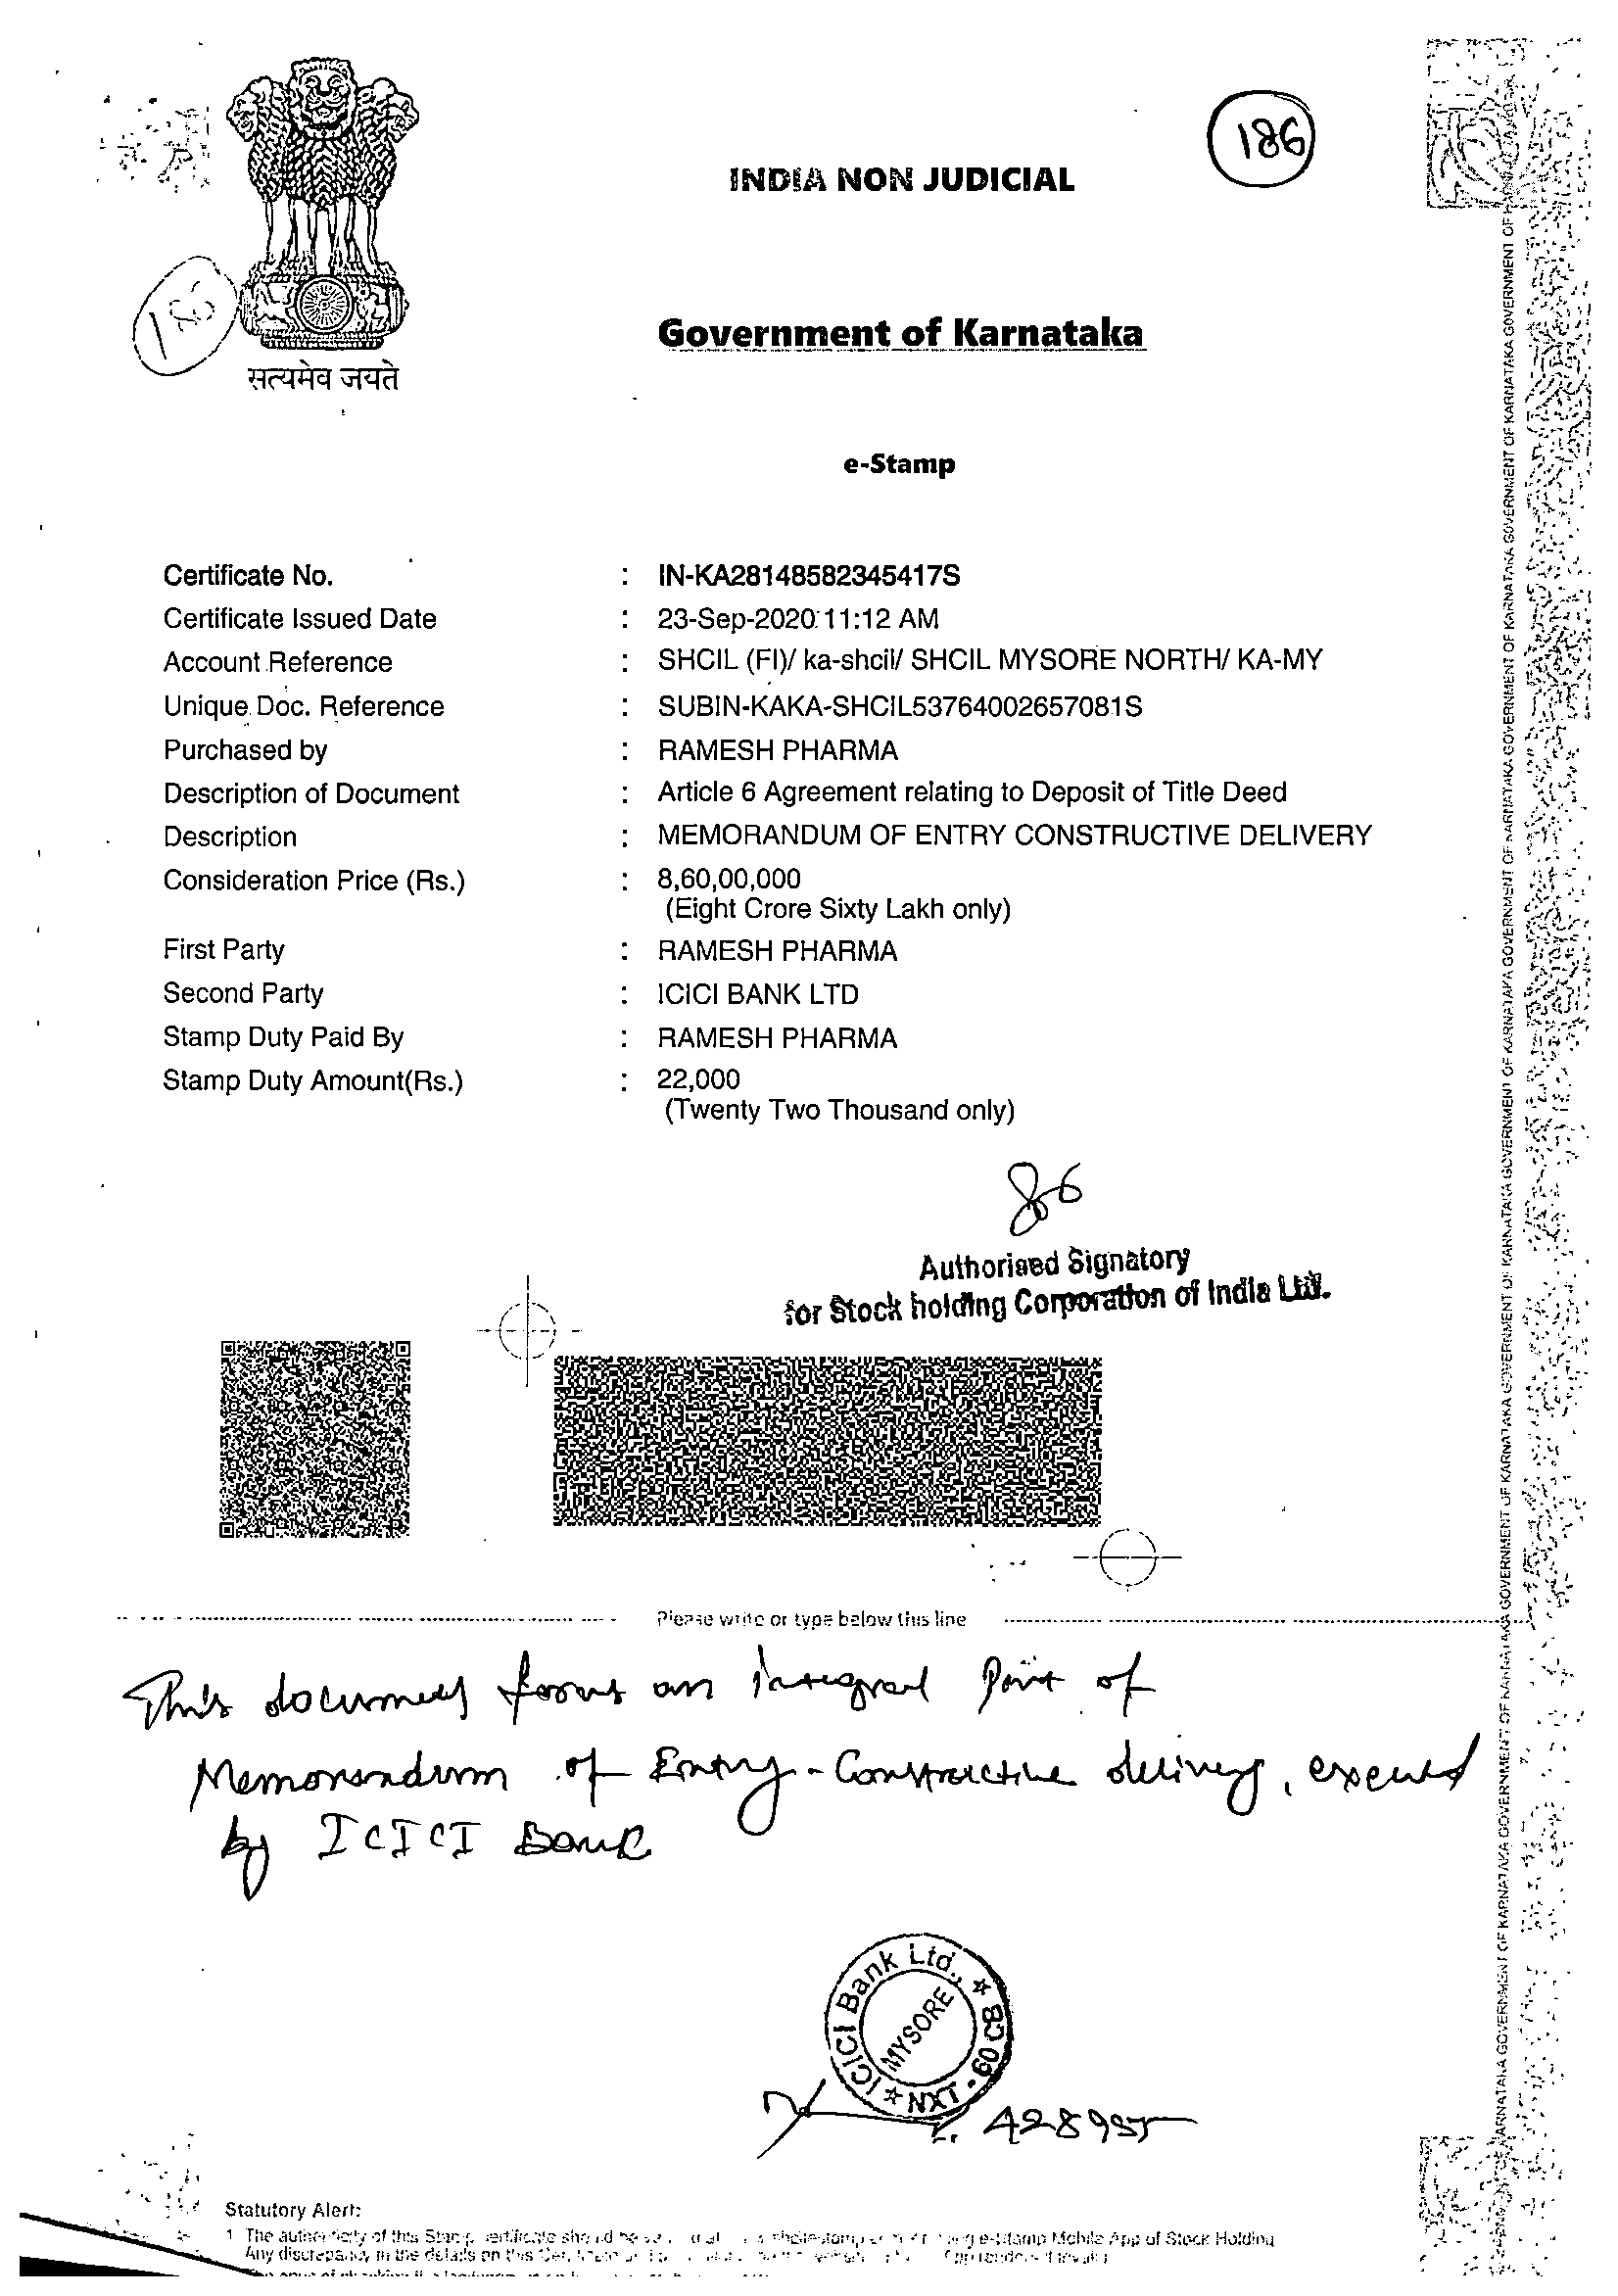 186
INDIA NON JUDICIAL
185
Government of Karnataka
सत्यमेव जयते
e-Stamp
Certificate No. : IN-KA28148582345417S
Certificate Issued Date : 23-Sep-2020 11:12 AM
Account Reference : SHCIL (FI)/ ka-shcil/ SHCIL MYSORE NORTH/ KA-MY
Unique Doc. Reference : SUBIN-KAKA-SHCIL53764002657081S
Purchased by : RAMESH PHARMA
Description of Document : Article 6 Agreement relating to Deposit of Title Deed
Description : MEMORANDUM OF ENTRY CONSTRUCTIVE DELIVERY
Consideration Price (Rs.) : 8,60,00,000
(Eight Crore Sixty Lakh only)
First Party : RAMESH PHARMA
Second Party : ICICI BANK LTD
Stamp Duty Paid By : RAMESH PHARMA
Stamp Duty Amount(Rs.) : 22,000
(Twenty Two Thousand only)
Authorised Signatory
for Stock holding Corporation of India Ltd.
Please write or type below this line
This document forms an integral part of
Memorandum of Entry - Constructive delivery, executed
by ICICI Bank
ICICI Bank Ltd., ☆ 60 CB 09 - NXT ☆
MYSORE
428985
Statutory Alert:
1 The authenticity of this Stamp certificate should be e-Stamp Mobile App of Stock Holding
Any discrepancy in the details on this
GOVERNMENT OF KARNATAKA GOVERNMENT OF KARNATAKA GOVERNMENT OF KARNATAKA